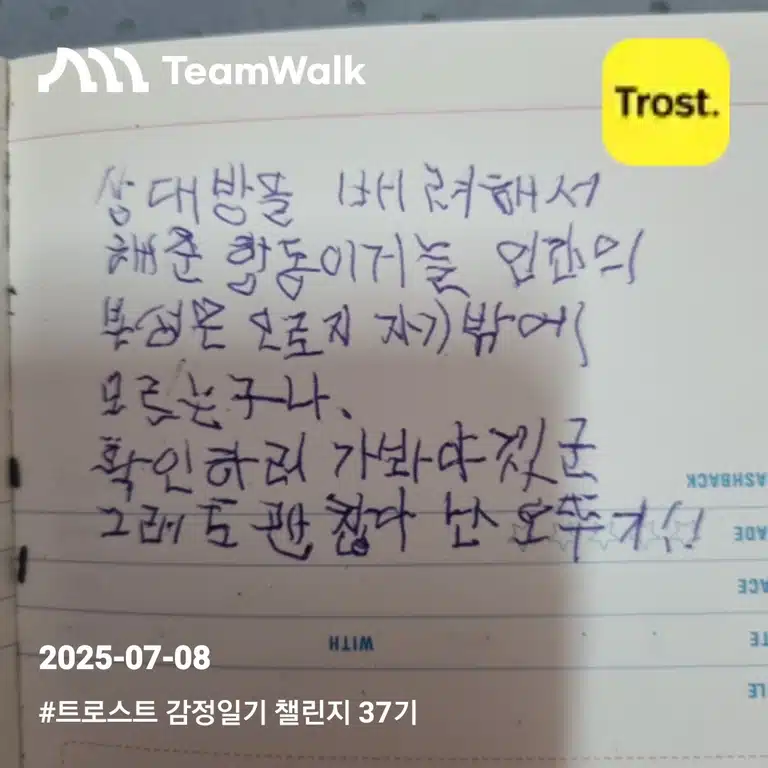 TeamWalk
Trost.
상대방을 배려해서
해준 합동이거늘 인간의
본성은 오로지 자기밖에
모르는구나.
확인하러 가봐야겠군
그래도 괜찮다 난
ASHBACK
ADE
ACE
WITH
TE
LE
2025-07-08
#트로스트 감정일기 챌린지 37기